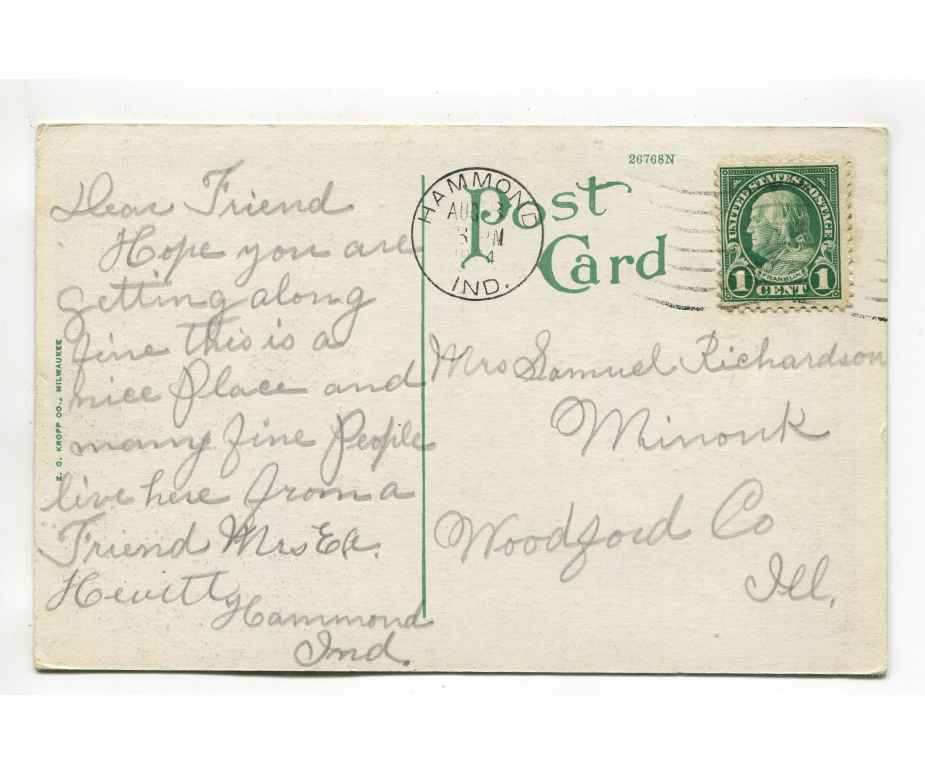 Dear Friend
Hope you are
getting along
fine this is a
nice Place and
many fine People
live here from a
Friend Mrs Ea.
Hewitt
Hammond
Ind.
E. C. KROPP CO., MILWAUKEE
26768N
Post
Card
HAMMOND
AUG
PM
IND.
UNITED STATES POSTAGE
FRANKLIN
1 CENT 1
Mrs Samuel Richardson
Minonk
Woodford Co
Ill.